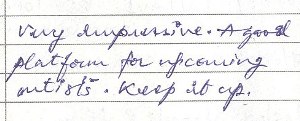 very impressive. A good
platform for upcoming
artists. Keep it up.